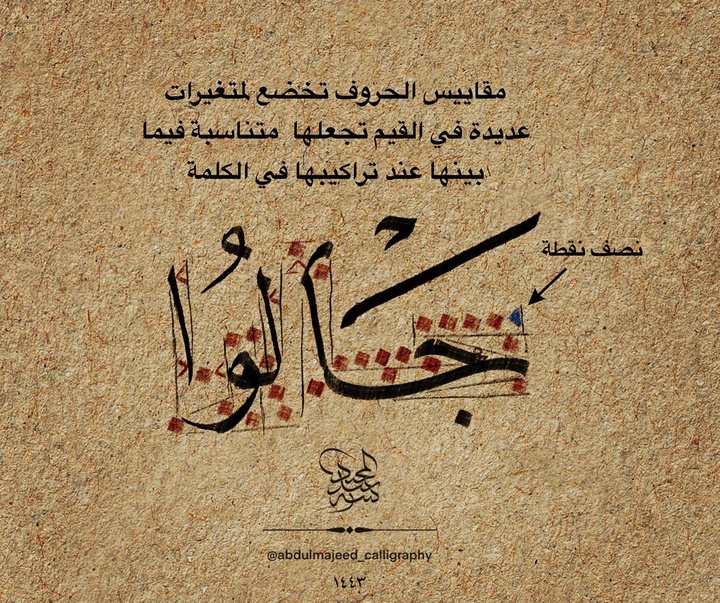 مقاييس الحروف تخضع لمتغيرات
عديدة في القيم تجعلها متناسبة فيما
بينها عند تراكيبها في الكلمة
نصف نقطة
@abdulmajeed_calligraphy
١٤٤٣